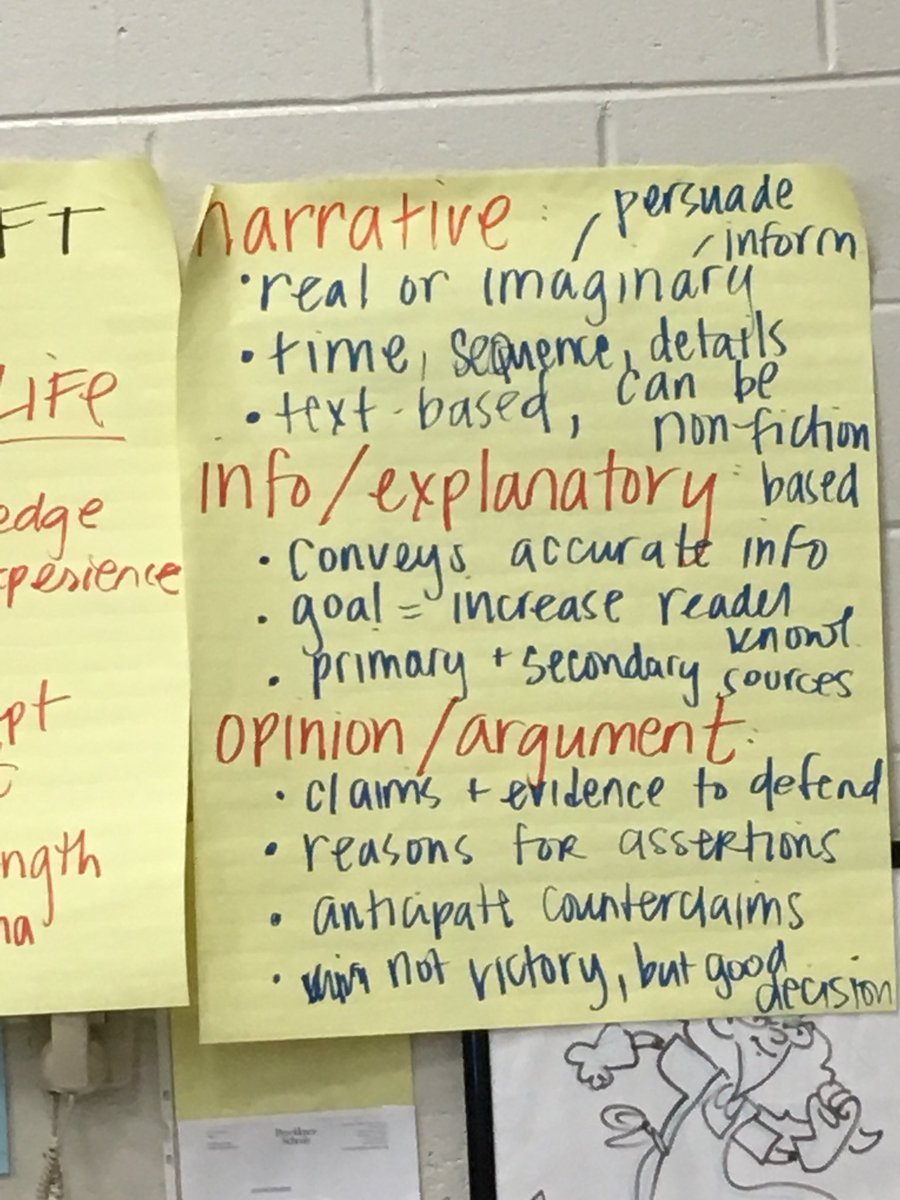 FT
LIFE
edge
xperience
pt
C
ngth
na
narrative: / persuade
/ inform
• real or imaginary
• time, sequence, details
• text-based, can be
non-fiction
based
info/explanatory:
• conveys accurate info
• goal = increase reader
knowl.
• primary + secondary sources
opinion/argument:
• claims + evidence to defend
• reasons for assertions
• anticipate counterclaims
• not victory, but good
decision
Providence
Schools